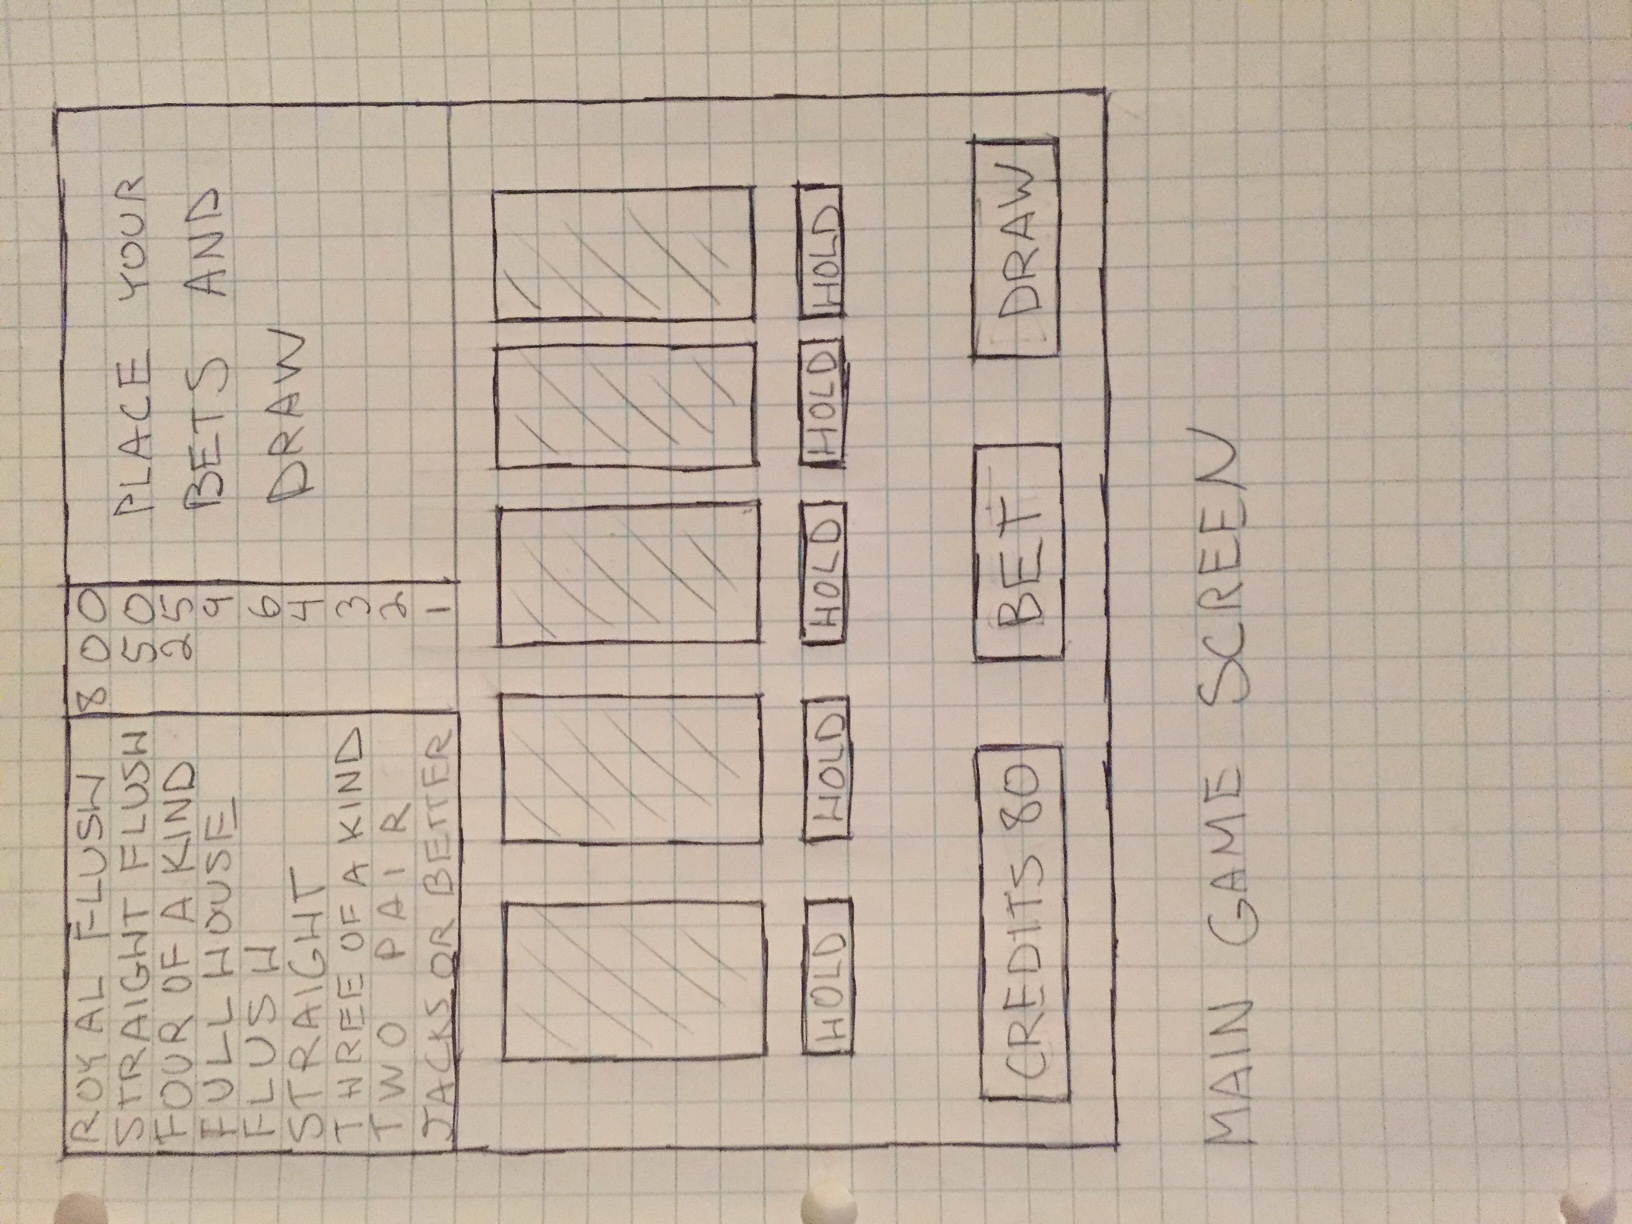 ROYAL FLUSH 800
STRAIGHT FLUSH 50
FOUR OF A KIND 25
FULL HOUSE 9
FLUSH 6
STRAIGHT 4
THREE OF A KIND 3
TWO PAIR 2
JACKS OR BETTER 1
PLACE YOUR
BETS AND
DRAW
HOLD HOLD HOLD HOLD HOLD
CREDITS 80 BET DRAW
MAIN GAME SCREEN